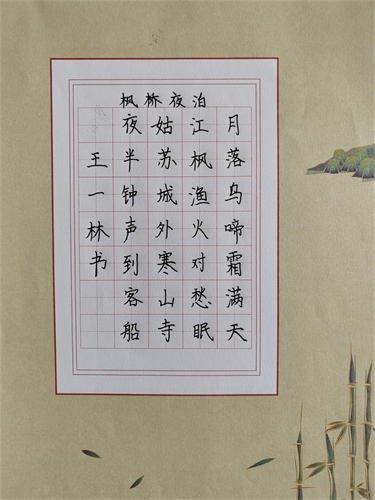 枫桥夜泊
月落乌啼霜满天
江枫渔火对愁眠
姑苏城外寒山寺
夜半钟声到客船
王一林书